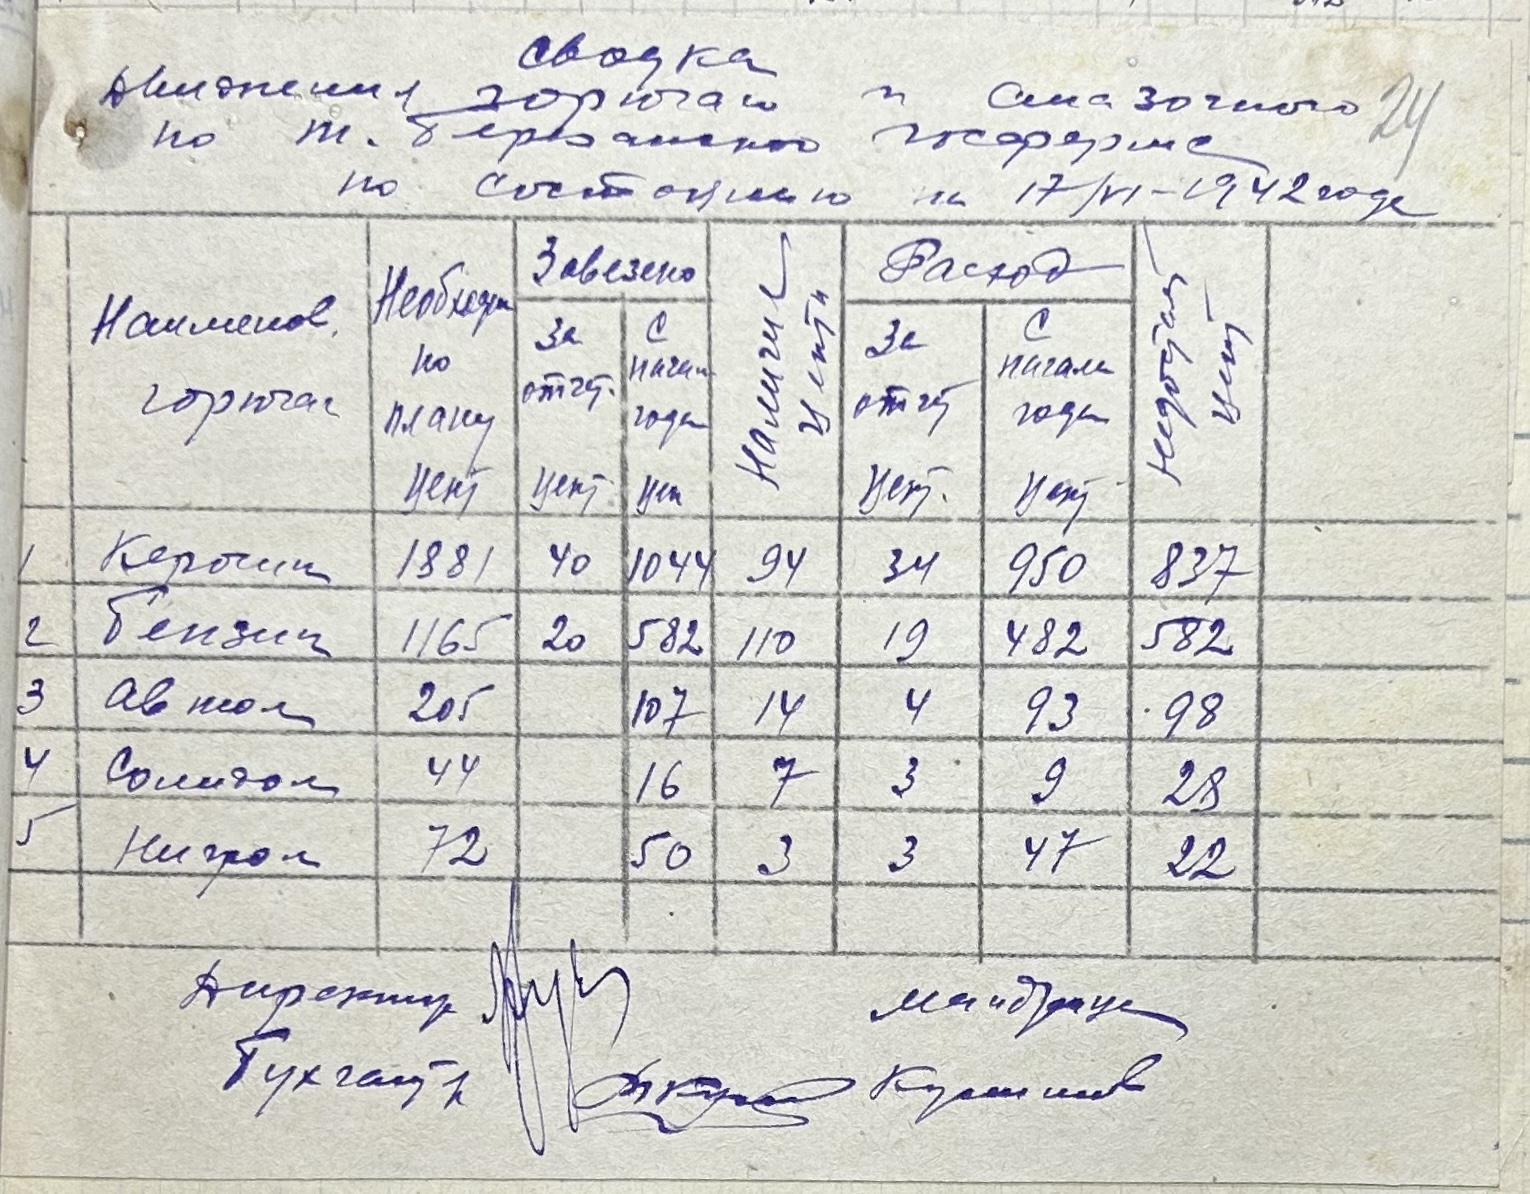 Сводка
Движения горючаго и смазочного
24
по т. Березанского госферме
по состоянию на 17/VI-1942 года
Наименов. горючаг
Необходим по плану Цент
Завезено
За отчет. Цент
С начал года Цен
Наличие Центн
Расход
За отчет Цент.
С начала года Цент
недобрал Цент
1 Керосин 1881 40 1044 94 34 950 837
2 Бензин 1165 20 582 110 19 482 582
3 Автол 205 107 14 4 93 98
4 Солидол 44 16 7 3 9 28
5 Нигрол 72 50 3 3 47 22
Директор
Бухгалтер